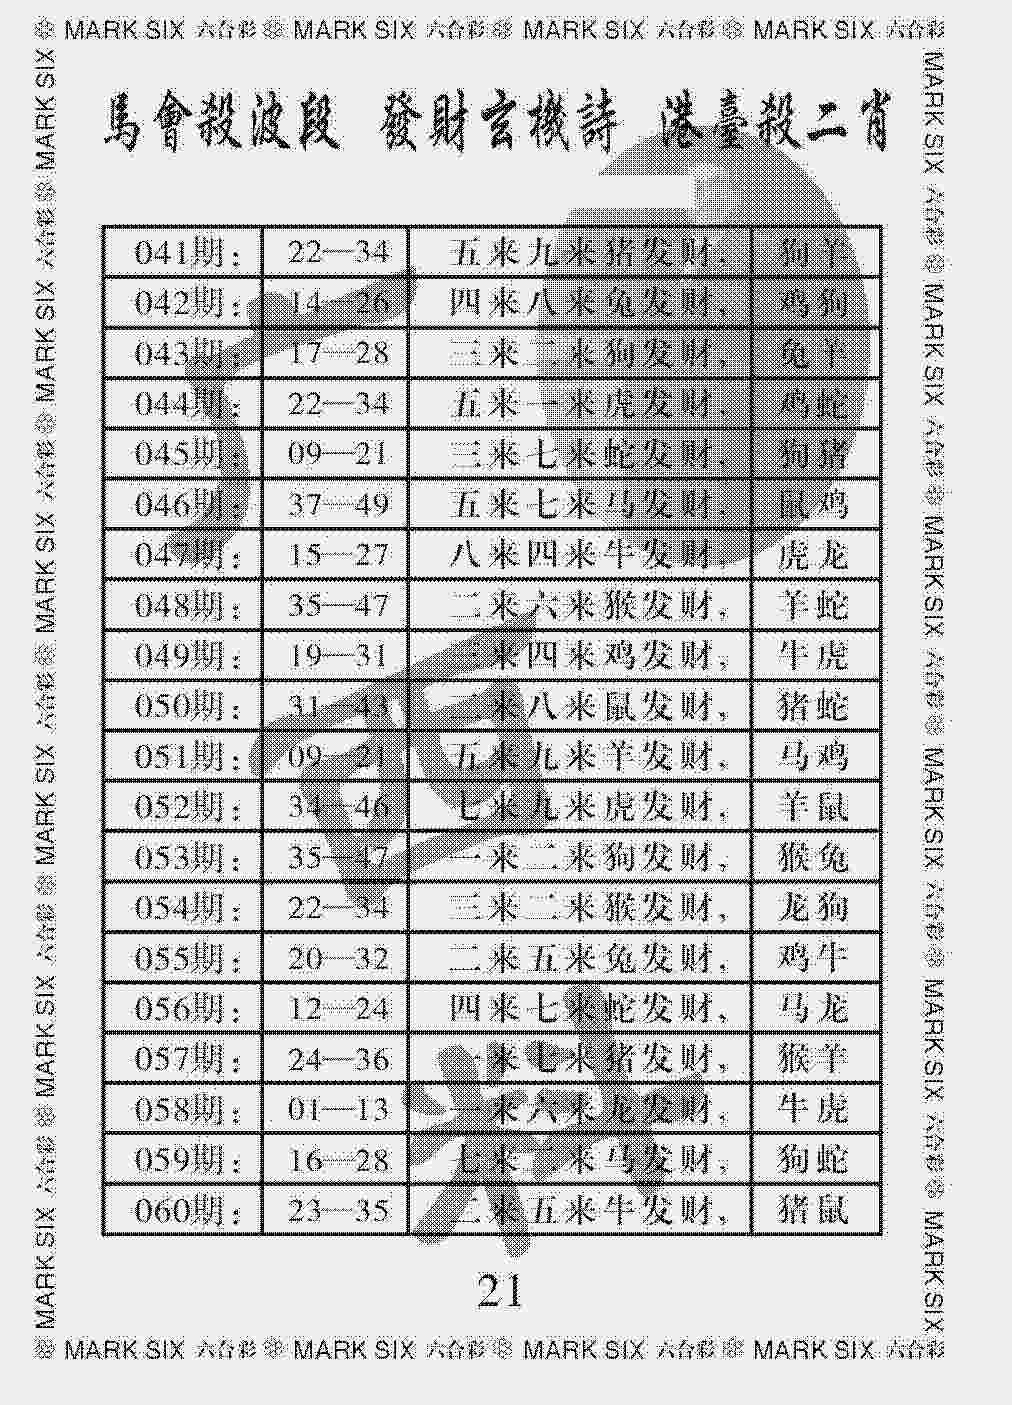 MARK SIX 六合彩 MARK SIX 六合彩 MARK SIX 六合彩 MARK SIX 六合彩
馬會殺波段 發財玄機詩 港臺殺二肖
041期: 22—34 五来九来猪发财, 狗羊
042期: 14—26 四来八来兔发财, 鸡狗
043期: 17—28 三来二来狗发财, 兔羊
044期: 22—34 五来一来虎发财, 鸡蛇
045期: 09—21 三来七来蛇发财, 狗猪
046期: 37—49 五来七来马发财, 鼠鸡
047期: 15—27 八来四来牛发财, 虎龙
048期: 35—47 二来六来猴发财, 羊蛇
049期: 19—31 来四来鸡发财, 牛虎
050期: 31—43 来八来鼠发财, 猪蛇
051期: 09—21 五来九来羊发财, 马鸡
052期: 34—46 七来九来虎发财, 羊鼠
053期: 35—47 一来二来狗发财, 猴兔
054期: 22—34 三来二来猴发财, 龙狗
055期: 20—32 二来五来兔发财, 鸡牛
056期: 12—24 四来七来蛇发财, 马龙
057期: 24—36 一来七来猪发财, 猴羊
058期: 01—13 一来六来龙发财, 牛虎
059期: 16—28 七来二来马发财, 狗蛇
060期: 23—35 来五来牛发财, 猪鼠
21
MARK SIX 六合彩 MARK SIX 六合彩 MARK SIX 六合彩 MARK SIX 六合彩
MARK SIX 六合彩 MARK SIX 六合彩 MARK SIX 六合彩 MARK SIX 六合彩 MARK SIX 六合彩 MARK SIX
MARK SIX 六合彩 MARK SIX 六合彩 MARK SIX 六合彩 MARK SIX 六合彩 MARK SIX 六合彩 MARK SIX